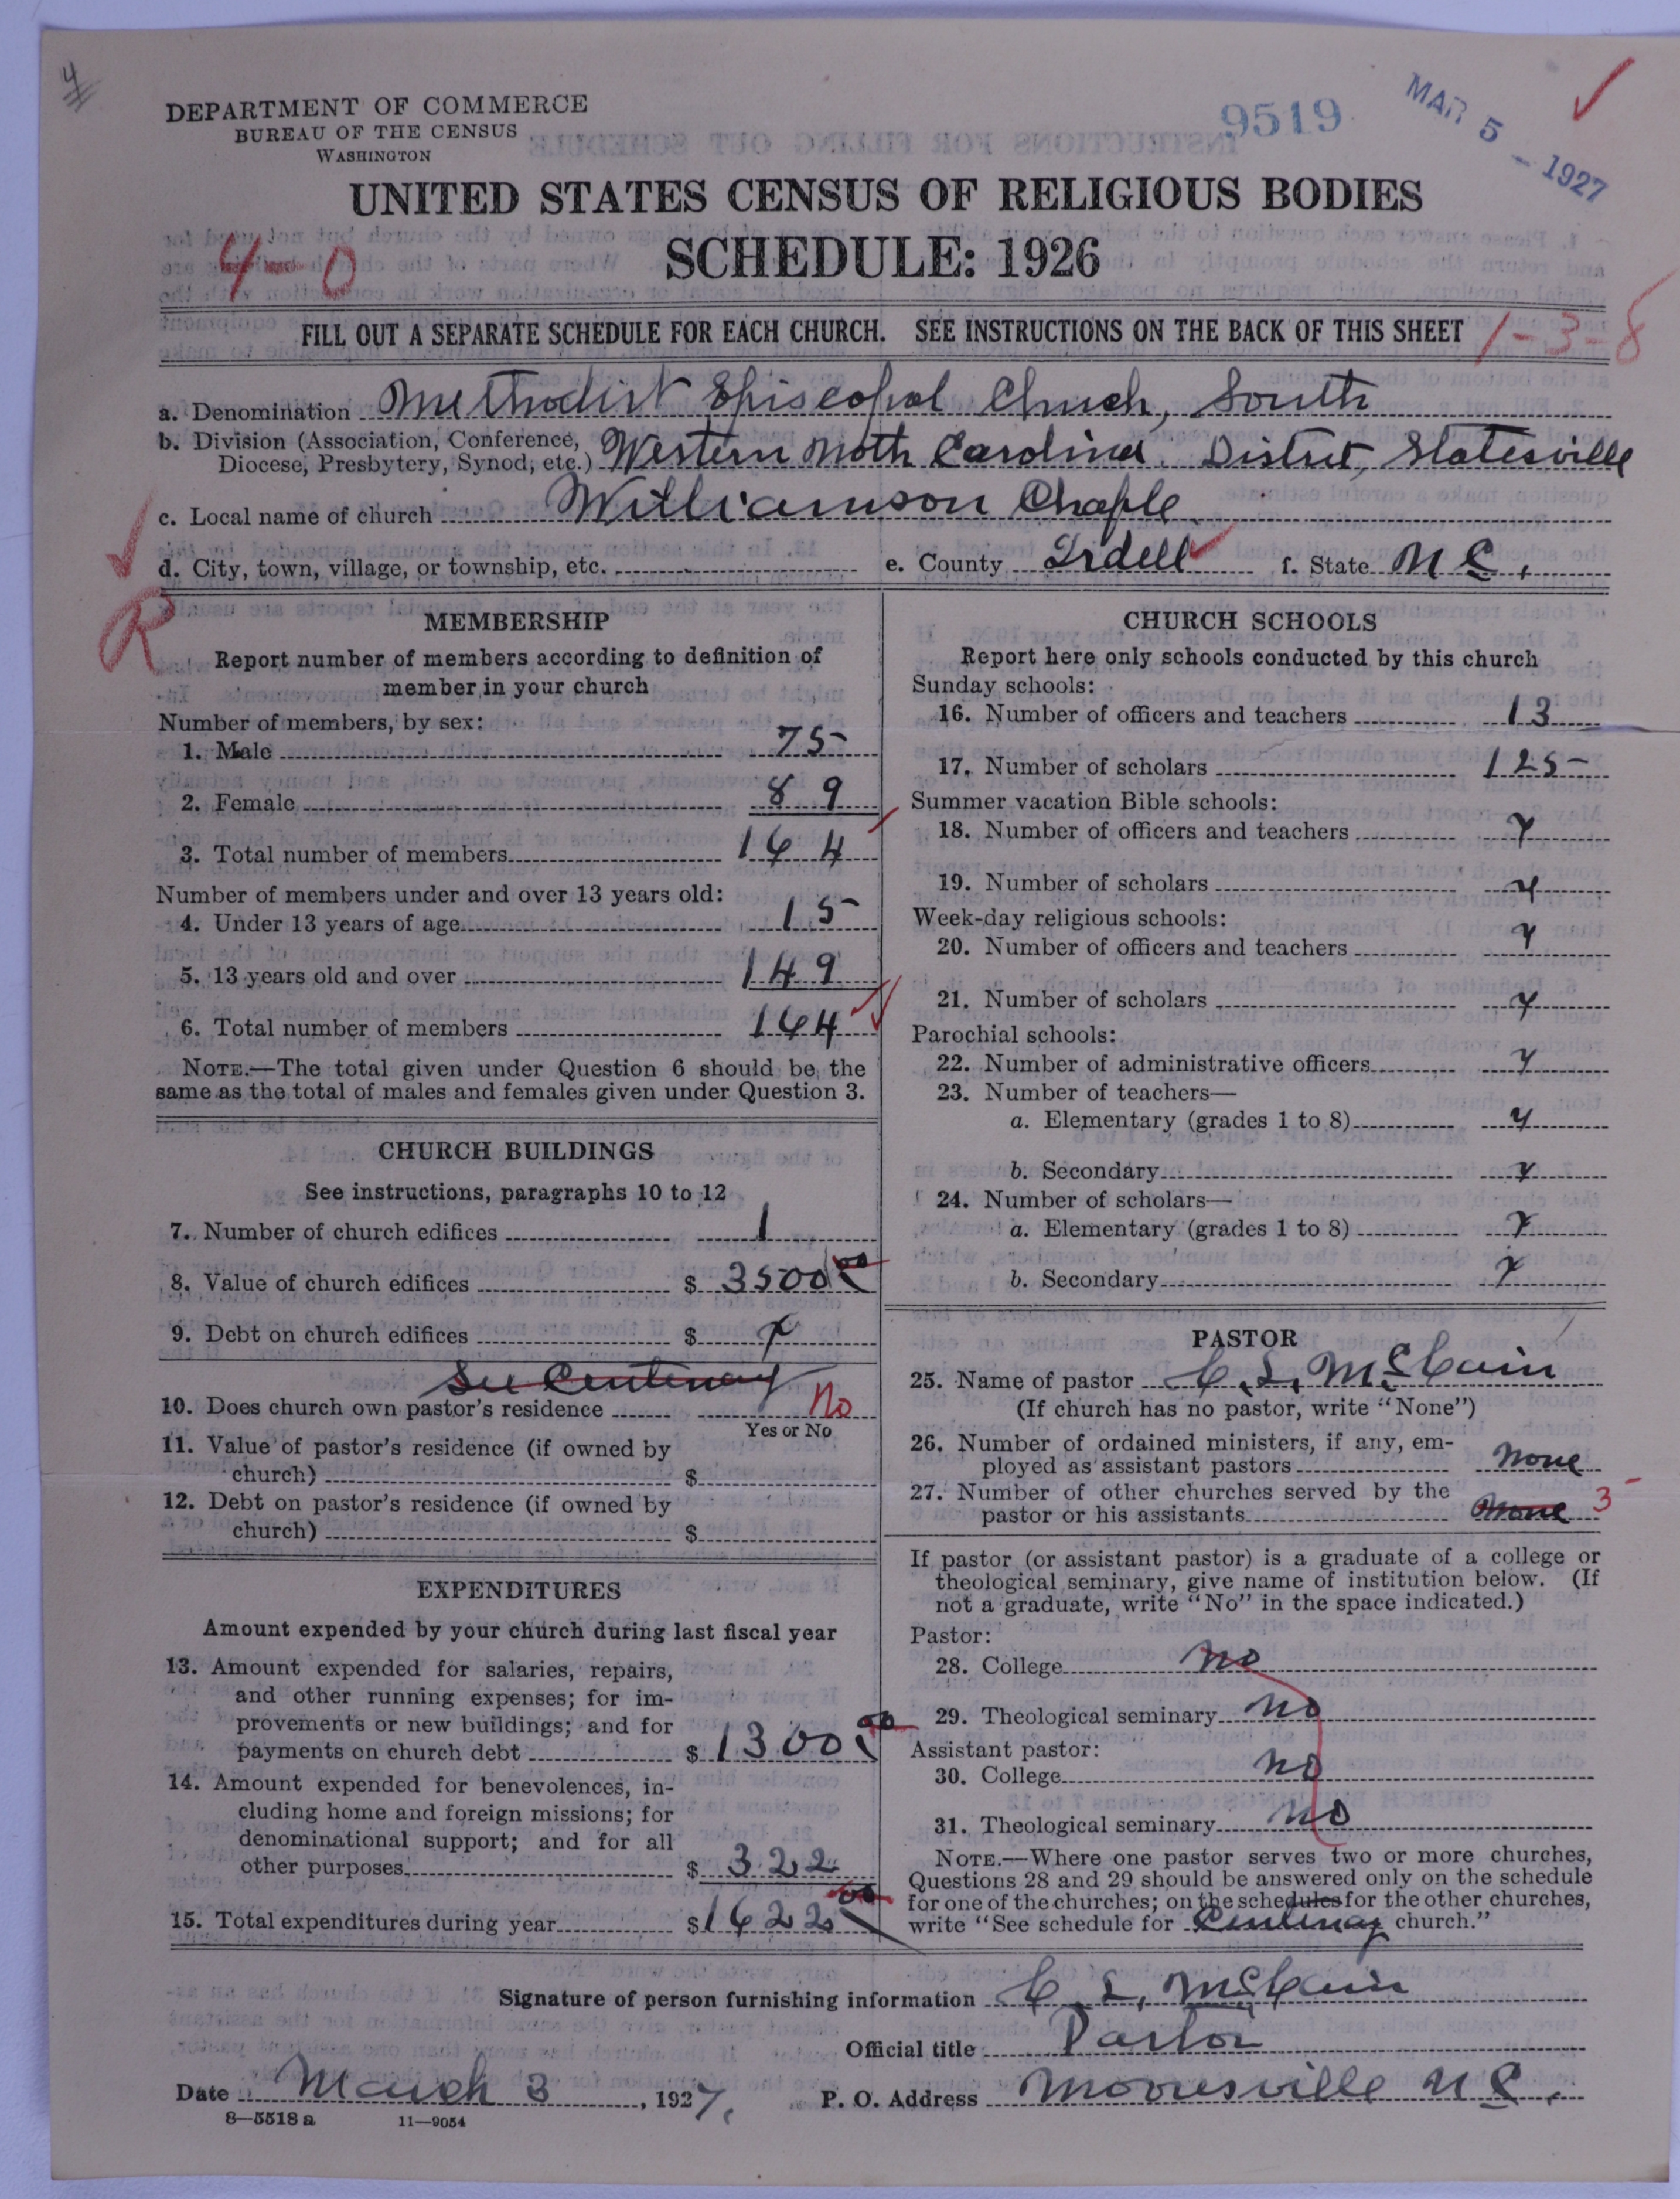 4
DEPARTMENT OF COMMERCE
BUREAU OF THE CENSUS
WASHINGTON
9519
MAR 5 - 1927
UNITED STATES CENSUS OF RELIGIOUS BODIES
SCHEDULE: 1926
4-0
FILL OUT A SEPARATE SCHEDULE FOR EACH CHURCH. SEE INSTRUCTIONS ON THE BACK OF THIS SHEET
1-3-8
a. Denomination Methodist Episcopal Church, South
b. Division (Association, Conference, Diocese, Presbytery, Synod, etc.) Western North Carolina. District, Statesville
c. Local name of church Williamson Chaple
d. City, town, village, or township, etc.
e. County Iredell f. State N C.
R
MEMBERSHIP
Report number of members according to definition of
member in your church
Number of members, by sex:
1. Male 75
2. Female 89
3. Total number of members 164
Number of members under and over 13 years old:
4. Under 13 years of age 15
5. 13 years old and over 149
6. Total number of members 164
NOTE.—The total given under Question 6 should be the
same as the total of males and females given under Question 3.
CHURCH BUILDINGS
See instructions, paragraphs 10 to 12
7. Number of church edifices 1
8. Value of church edifices $ 3500 00
9. Debt on church edifices $ x
See Centenary
10. Does church own pastor's residence No
Yes or No
11. Value of pastor's residence (if owned by
church) $
12. Debt on pastor's residence (if owned by
church) $
EXPENDITURES
Amount expended by your church during last fiscal year
13. Amount expended for salaries, repairs,
and other running expenses; for im-
provements or new buildings; and for
payments on church debt $ 1300 00
14. Amount expended for benevolences, in-
cluding home and foreign missions; for
denominational support; and for all
other purposes $ 322
15. Total expenditures during year $ 1622 00
CHURCH SCHOOLS
Report here only schools conducted by this church
Sunday schools:
16. Number of officers and teachers 13
17. Number of scholars 125
Summer vacation Bible schools:
18. Number of officers and teachers x
19. Number of scholars x
Week-day religious schools:
20. Number of officers and teachers x
21. Number of scholars x
Parochial schools:
22. Number of administrative officers x
23. Number of teachers—
a. Elementary (grades 1 to 8) x
b. Secondary x
24. Number of scholars—
a. Elementary (grades 1 to 8) x
b. Secondary x
PASTOR
25. Name of pastor C. L. McCain
(If church has no pastor, write "None")
26. Number of ordained ministers, if any, em-
ployed as assistant pastors none
27. Number of other churches served by the
pastor or his assistants none 3
If pastor (or assistant pastor) is a graduate of a college or
theological seminary, give name of institution below. (If
not a graduate, write "No" in the space indicated.)
Pastor:
28. College no
29. Theological seminary no
Assistant pastor:
30. College no
31. Theological seminary no
NOTE.—Where one pastor serves two or more churches,
Questions 28 and 29 should be answered only on the schedule
for one of the churches; on the schedules for the other churches,
write "See schedule for Centenary church."
Signature of person furnishing information C. L. McCain
Official title Pastor
Date March 3, 1927. P. O. Address Mooresville N C.
8—5518 a 11—9054